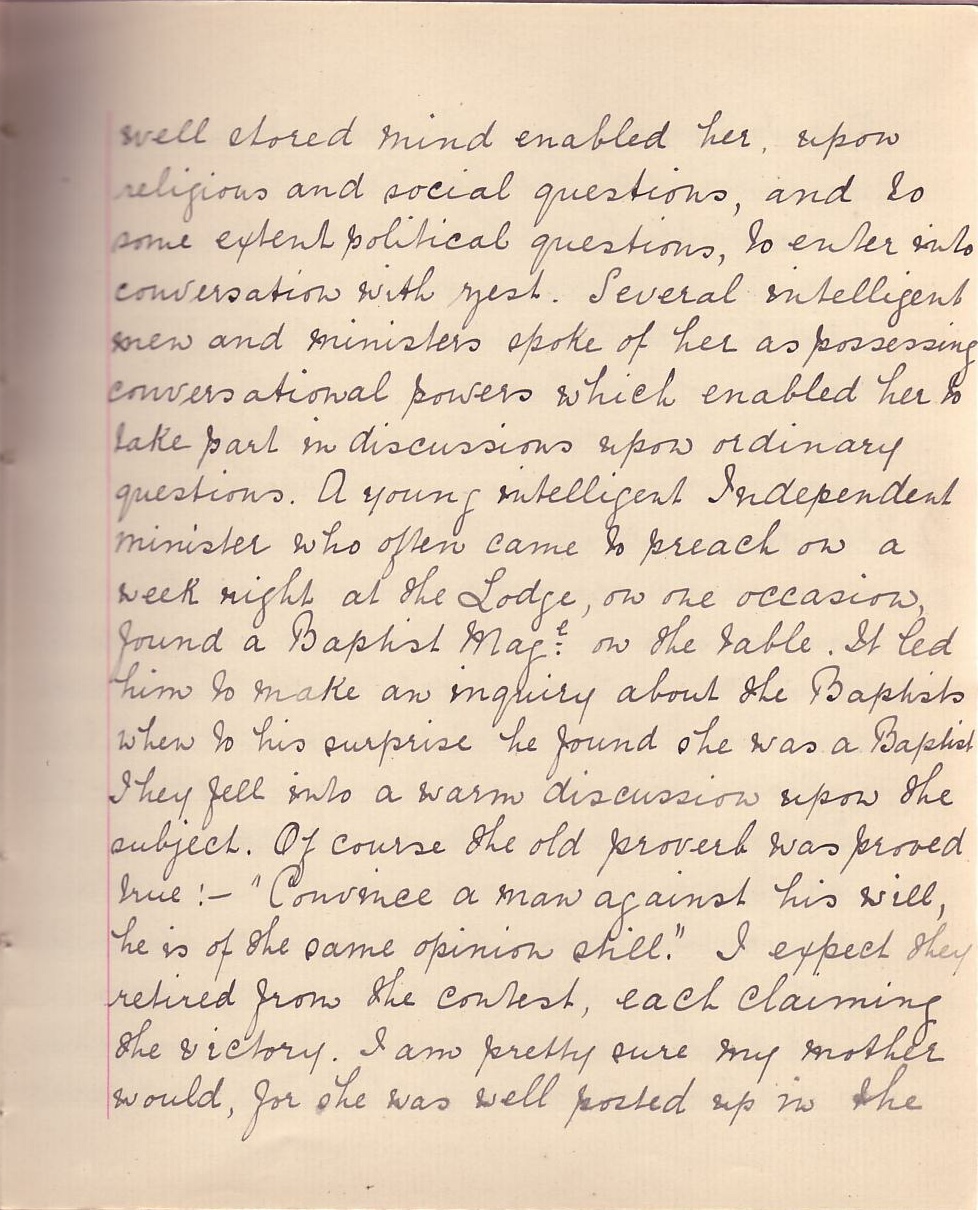 well stored mind enabled her, upon
religious and social questions, and to
some extent political questions, to enter into
conversation with zest. Several intelligent
men and ministers spoke of her as possessing
conversational powers which enabled her to
take part in discussions upon ordinary
questions. A young intelligent Independent
minister who often came to preach on a
week night at the Lodge, on one occasion,
found a Baptist Mag.e on the table. It led
him to make an inquiry about the Baptists
when to his surprise he found she was a Baptist
They fell into a warm discussion upon the
subject. Of course the old proverb was proved
true :- "Convince a man against his will,
he is of the same opinion still." I expect they
retired from the contest, each claiming
the victory. I am pretty sure my mother
would, for she was well posted up in the